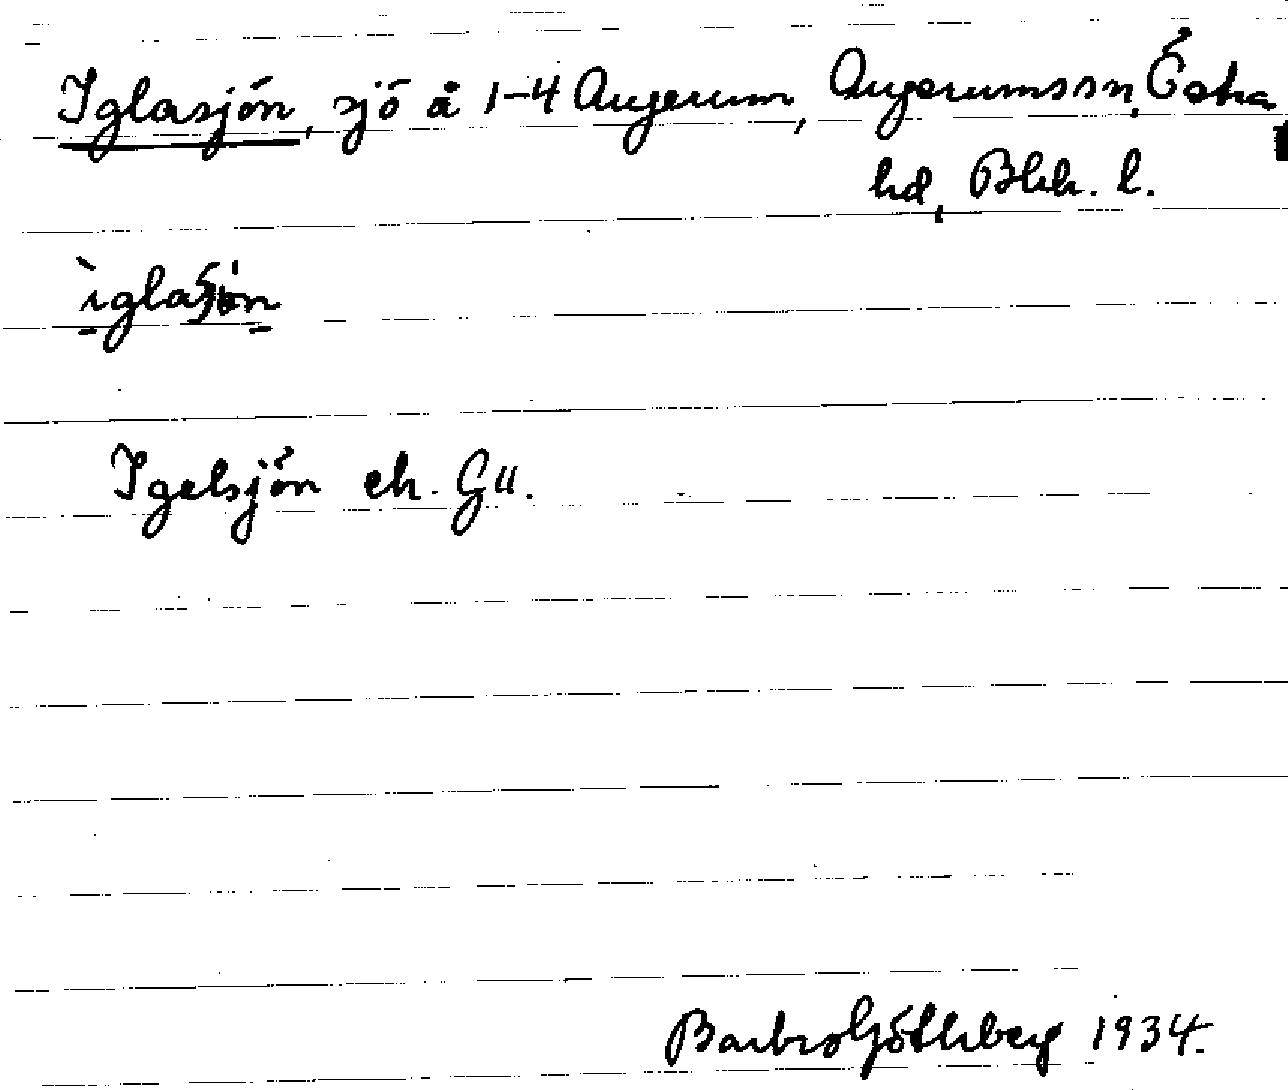 Iglasjön, sjö å 1-4 Augerum, Augerumssn, Östra
hd, Blek. l.
ìglaʃön
Igelsjön ek. Gu.
Barbro Göthberg 1934.